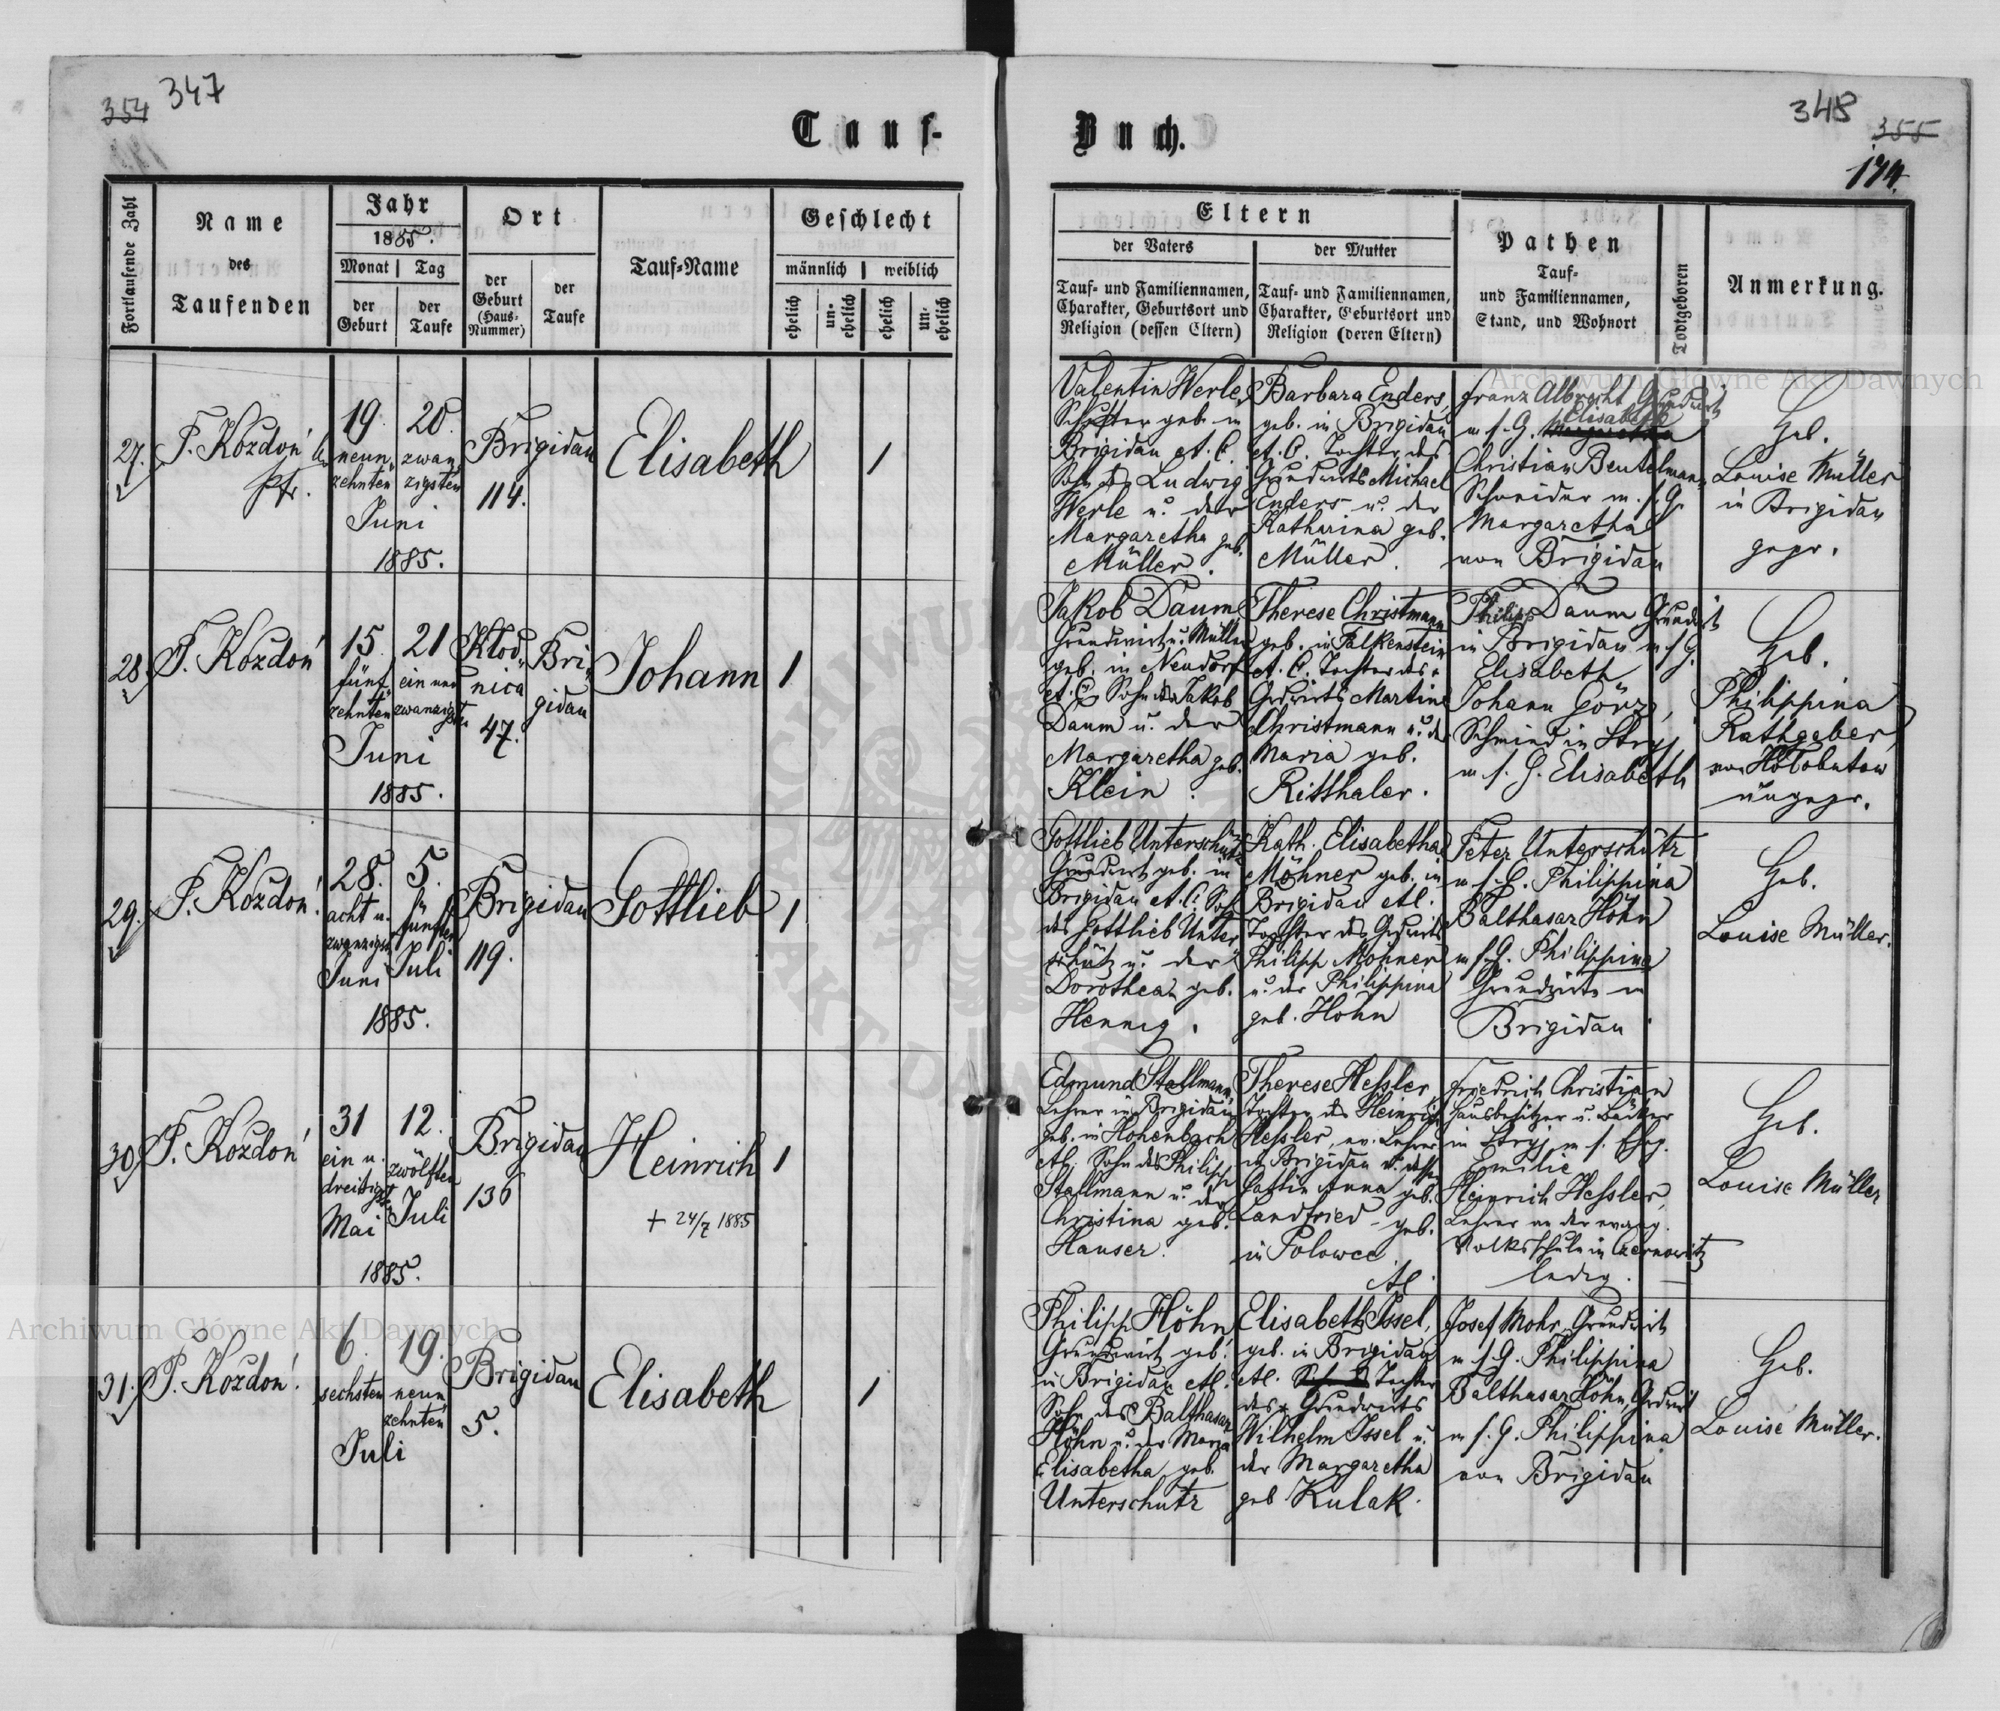 354 347
Tauf-
Buch.
348 355
174.
Fortlaufende Zahl
Name
des
Taufenden
Jahr
1885.
Monat | Tag
der Geburt
der Taufe
Ort
der
Geburt
(Haus-
Nummer)
der
Taufe
Tauf-Name
Geschlecht
männlich | weiblich
ehelich
un-
ehelich
ehelich
un-
ehelich
Eltern
der Vaters
der Mutter
Tauf- und Familiennamen,
Charakter, Geburtsort und
Religion (dessen Eltern)
Tauf- und Familiennamen,
Charakter, Geburtsort und
Religion (deren Eltern)
Pathen
Tauf-
und Familiennamen,
Stand, und Wohnort
Todtgeboren
Anmerkung.
27.
F. Kozdoń
pfr.
19.
neun-
zehnten
20.
zwan-
zigsten
Juni
1885.
Brigidau
114.
Elisabeth
1
Valentin Werle,
Schuster geb. in
Brigidau A. C.
Sohn des Ludwig
Werle u. der
Margaretha geb.
Müller.
Barbara Enders,
geb. in Brigidau
A. C. Tochter des
Grundwirts Michael
Enders u. der
Katharina geb.
Müller.
Franz Albrecht, Grundwirt
Elisabeth
m. s. G. Margaretha
Christian Beutelmann,
Schneider m. s. G.
Margaretha
von Brigidau
Heb.
Louise Müller
in Brigidau
gepr.
28.
F. Kozdoń
15.
fünf-
zehnten
21
ein und
zwanzigsten
Juni
1885.
Kłod-
nica
47.
Bri-
gidau
Johann
1
Jakob Daum
Grundwirt u. Müller
geb. in Neudorf
A. C. Sohn des Jakob
Daum u. der
Margaretha geb.
Klein.
Therese Christmann
geb. in Falkenstein
A. C. Tochter des
Grdwirts Martin
Christmann u. der
Maria geb.
Ritthaler.
Philipp Daum Grundwirt
in Brigidau m. s. G.
Elisabeth
Johann Görz,
Schmied in Stryj
m. s. G. Elisabeth
Heb.
Philippina
Rathgeber,
von Hołobutow
ungepr.
29.
F. Kozdoń.
28.
acht u.
zwanzigsten
Juni
5.
fünften
Juli
1885.
Brigidau
119.
Gottlieb
1
Gottlieb Unterschütz
Grundwirt geb. in
Brigidau A. C. Sohn
des Gottlieb Unter-
schütz u. der
Dorothea geb.
Hennig.
Kath. Elisabetha
Möhner geb. in
Brigidau A. C.
Tochter des Grdwirts
Philipp Möhner
u. der Philippina
geb. Höhn
Peter Unterschütz
m. s. G. Philippina
Balthasar Höhn
m. s. G. Philippina
Grundwirte in
Brigidau.
Heb.
Louise Müller.
30.
F. Kozdoń
31
ein u.
dreißigsten
Mai
12.
zwölften
Juli
1885.
Brigidau
136
Heinrich
+ 24/7 1885
1
Edmund Stallmann,
Lehrer in Brigidau
geb. in Hohenbach
A. C. Sohn des Philipp
Stallmann u. der
Christina geb.
Hauser.
Therese Heßler,
Tochter des Heinrich
Heßler, ev. Lehrer
in Brigidau u. dessen
Gattin Anna geb.
Landfried - geb.
in Polowce
A. C.
Friedrich Christian
Hausbesitzer u. Bäcker
in Stryj m. s. Ehg.
Emilie
Heinrich Heßler,
Lehrer an der evang.
Volksschule in Czernowitz
ledig.
Heb.
Louise Müller
31.
F. Kozdoń.
6.
sechsten
19.
neun-
zehnten
Juli
Brigidau
5.
Elisabeth
1
Philipp Höhn
Grundwirt geb.
in Brigidau A. C.
Sohn des Balthasar
Höhn u. der Maria
Elisabetha geb.
Unterschütz
Elisabeth Issel,
geb. in Brigidau
A. C. Tochter
des Grundwirts
Wilhelm Issel u.
der Margaretha
geb. Kulak.
Josef Mohr, Grundwirt
m. s. G. Philippina
Balthasar Höhn, Grdwirt
m. s. G. Philippina
von Brigidau
Heb.
Louise Müller.
Archiwum Główne Akt Dawnych
Archiwum Główne Akt Dawnych